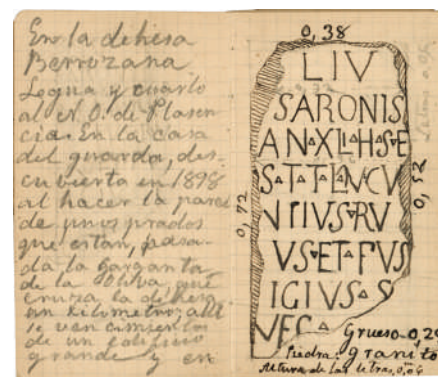 En la dehesa
Berrozana
Legua y cuarto
al N.O. de Plasen
cia. En la casa
del guarda, des-
cubierta en 1898
al hacer la pared
de unos prados
que están, pasa-
da la garganta
de la Oliva, que
cruza la dehesa
un kilometro; allí
se ven cimientos
de un edificio
grande y en
0,38
LIV
SARONIS
AN▵XLI▵H▵S▵E
S▵T▵T▵L▵VCV
VPIVS▿RV
VS▿ET▵FVS
IGIVS▵S
VFC▵
0,72
0,52
Grueso 0,20
Piedra: granito
Altura de las letras, 0,06